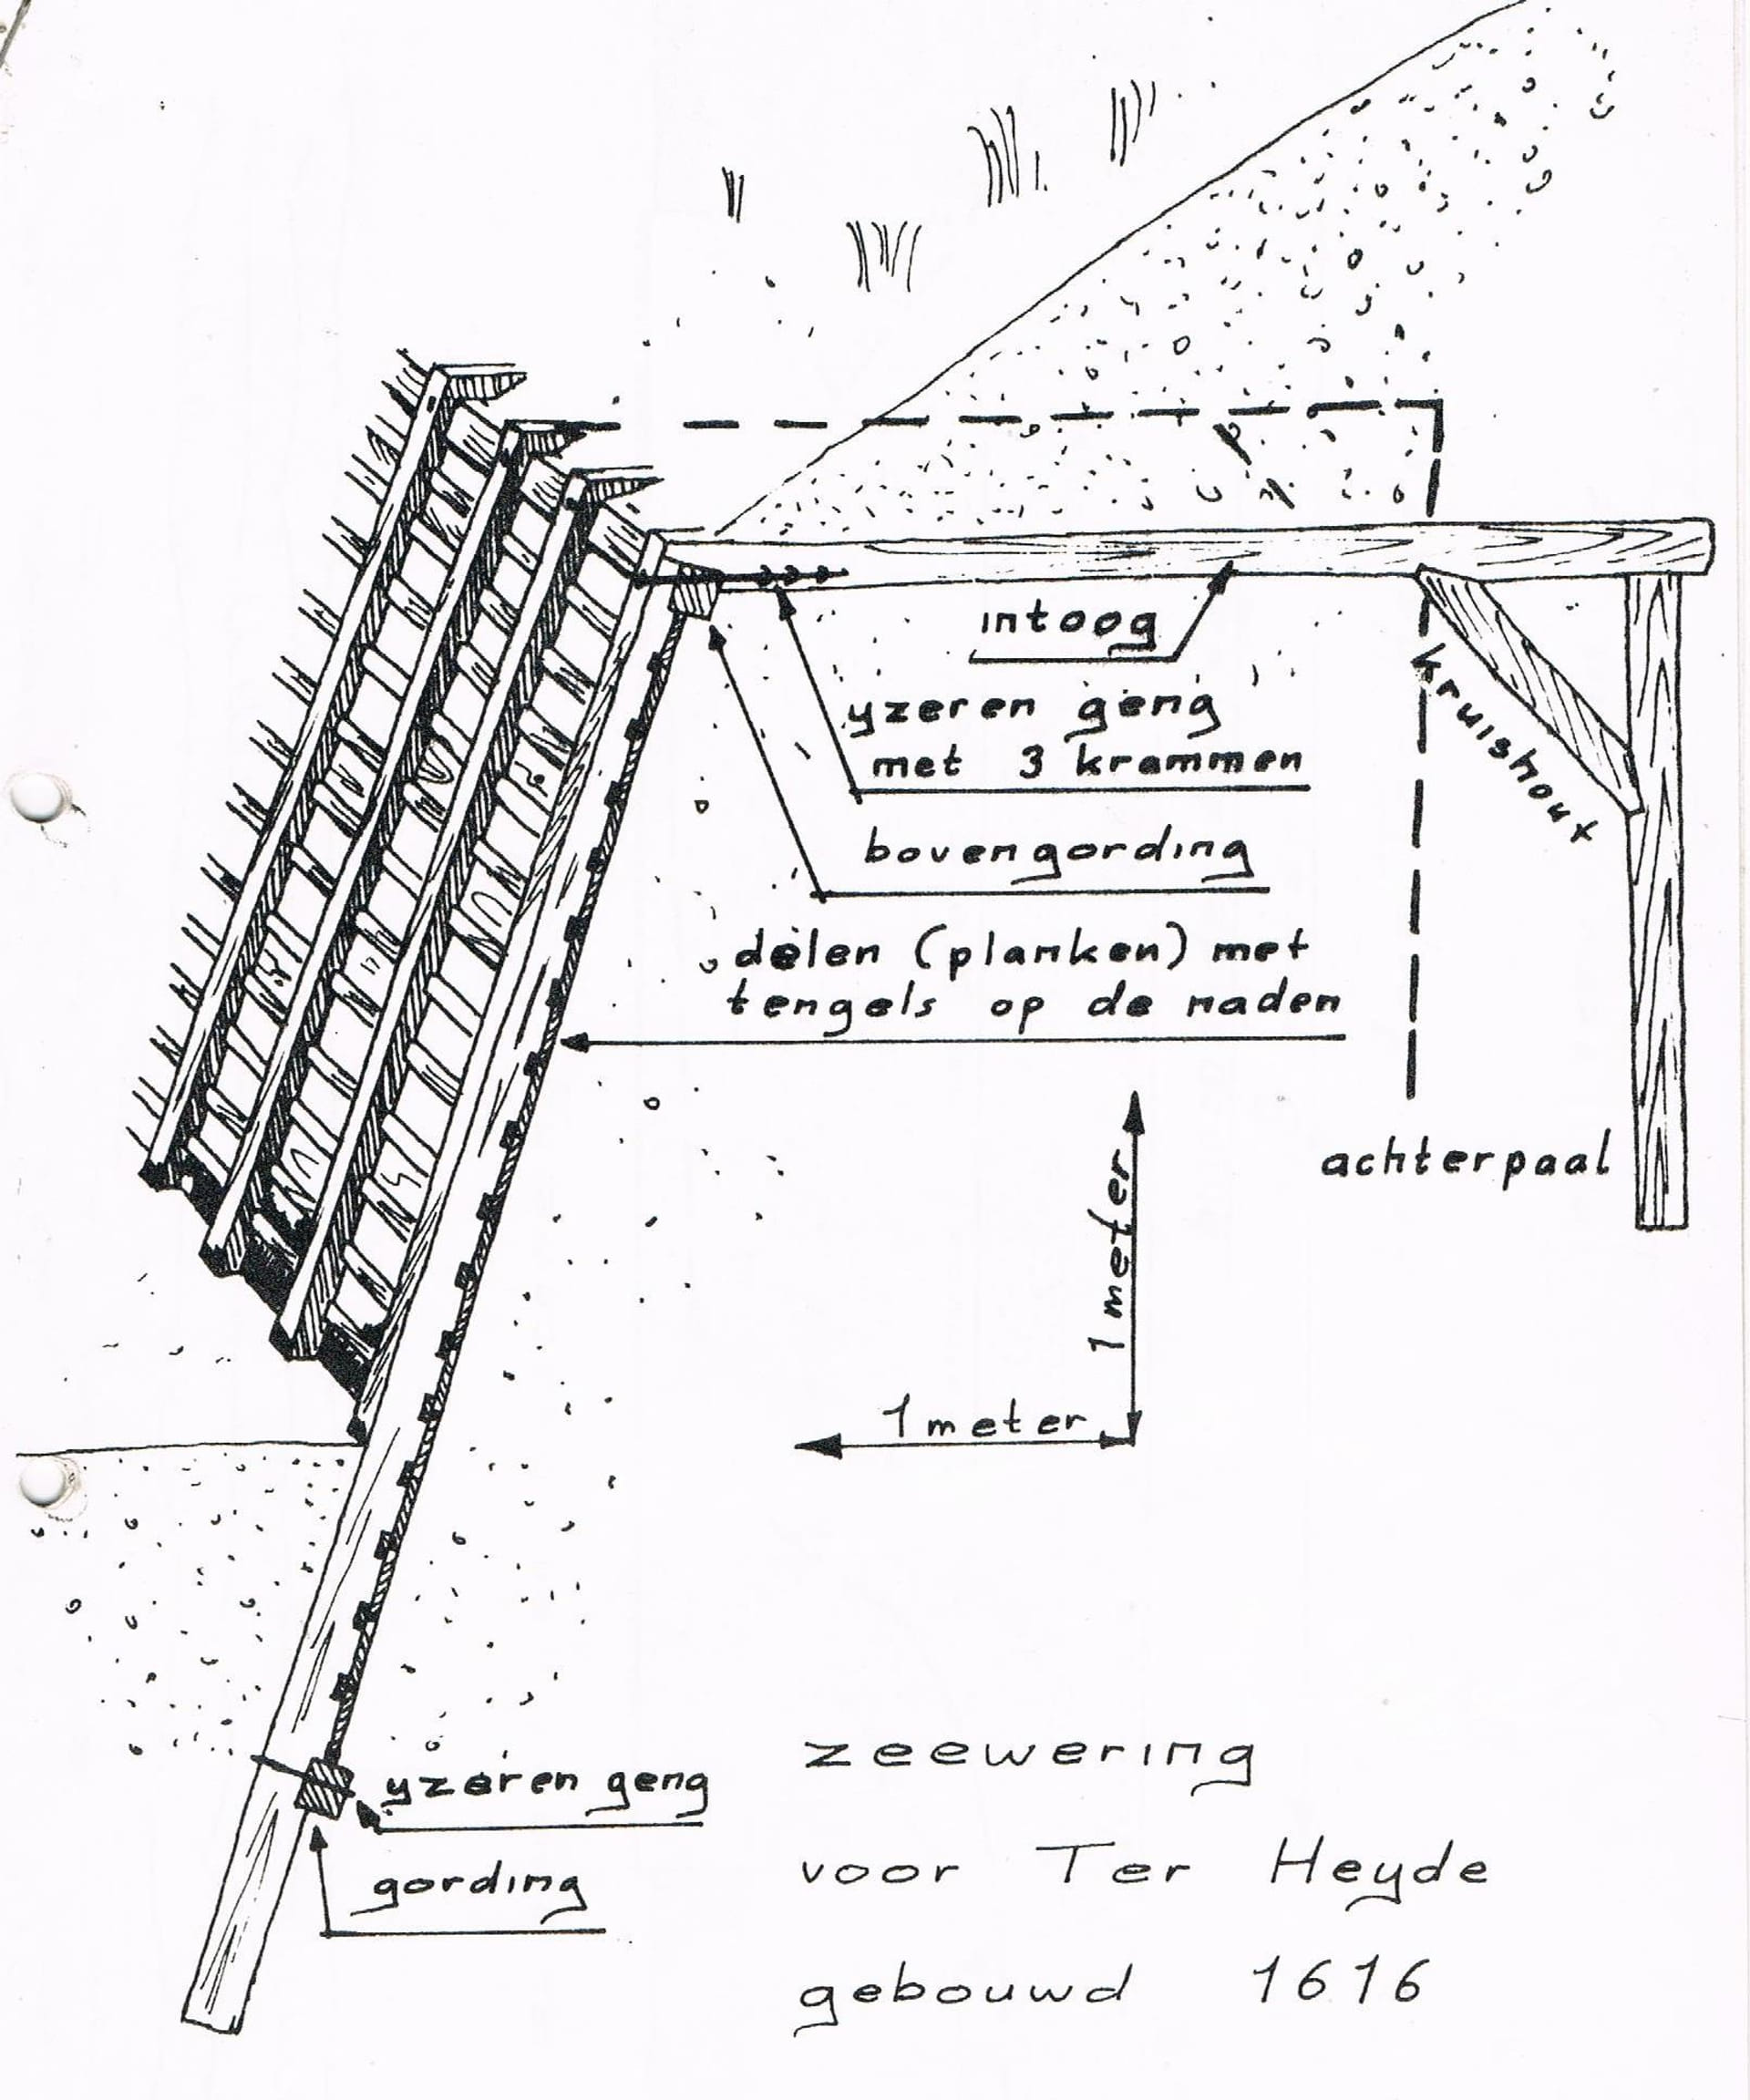 intoog
kruishout
yzeren geng
met 3 krammen
bovengording
delen (planken) met
tengels op de naden
achterpaal
1 meter
1 meter
yzeren geng
gording
zeewering
voor Ter Heyde
gebouwd 1616